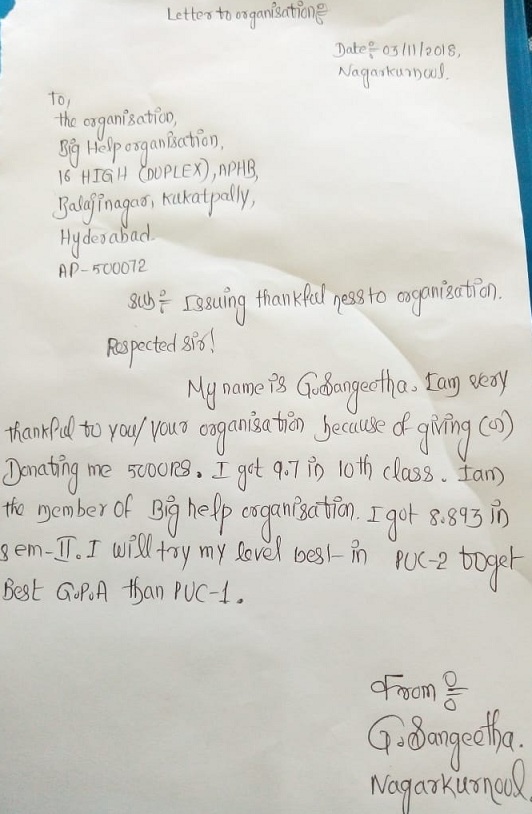 Letter to organisation:
Date: 03/11/2018,
Nagarkurnool.
To,
the organisation,
Big Help organisation,
16 HIGH (DUPLEX), APHB,
Balajinagar, Kukatpally,
Hyderabad
AP-500072
Sub: Issuing thankful ness to organisation.
Respected sir!
My name is G.Sangeetha. I am very
thankful to you/your organisation because of giving (or)
Donating me 5000RS. I got 9.7 in 10th class. I am
the member of Big help organisation. I got 8.893 in
sem-II. I will try my level best in PUC-2 to get
Best G.P.A than PUC-1.
From:
G.Sangeetha.
Nagarkurnool.